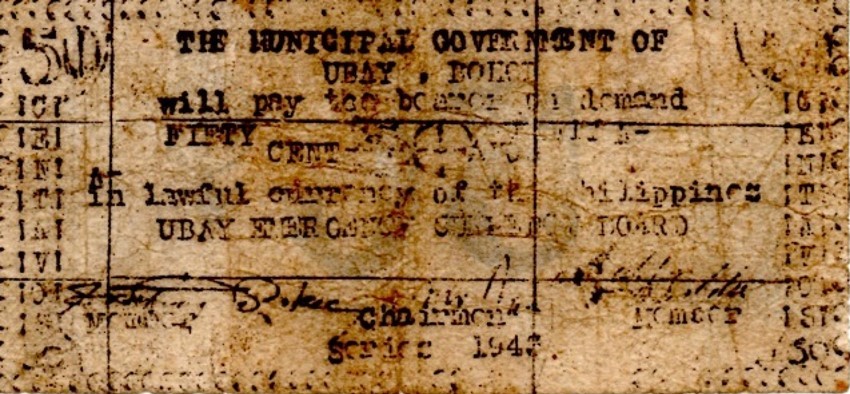 50
THE MUNICIPAL GOVERNMENT OF
UBAY, BOHOL
will pay the bearer on demand
FIFTY
CENTAVOS
In lawful currency of the Philippines
UBAY EMERGENCY CURRENCY BOARD
Member Chairman Member
Series 1943
50
CENTAVOS
CENTAVOS